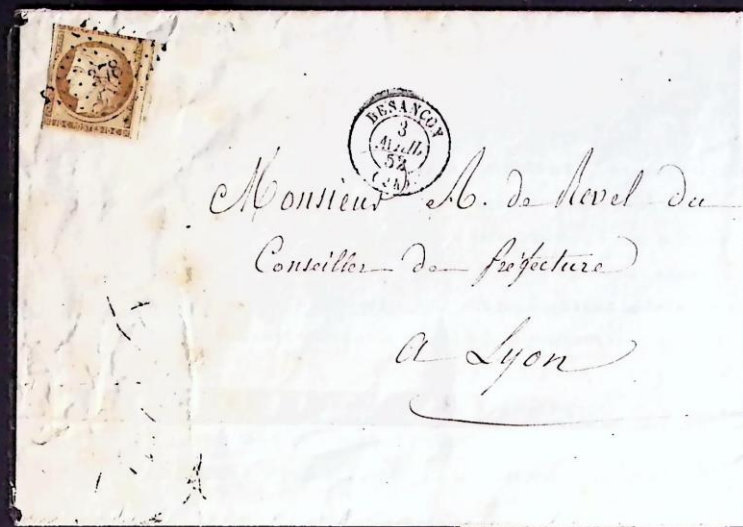 378
BESANÇON
3
52
(24)
Monsieur A. de Revel du
Conseiller de préfecture
a Lyon